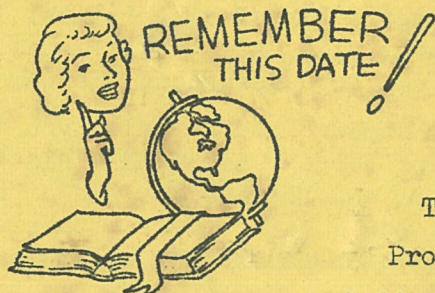 REMEMBER
THIS DATE!
T
Pro